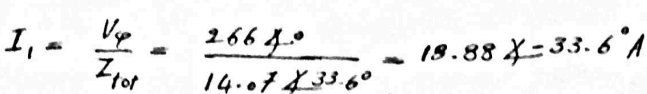 I₁ = Vφ / Z_tot = 266 ∠° / 14.07 ∠33.6° = 18.88 ∠-33.6° A